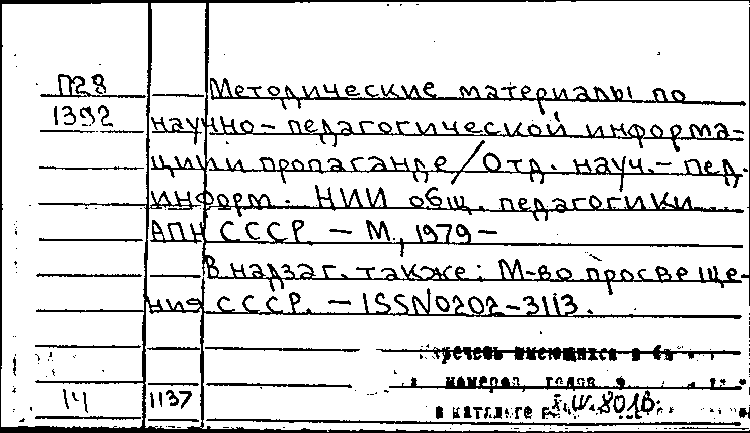 П28 Методические материалы по
1392 научно-педагогической информа-
ции и пропаганде/Отд. науч.-пед.
информ. НИИ общ. педагогики
АПН СССР. - М., 1979-
В надзаг. также: М-во просвеще-
ния СССР. - ISSN0202-3113.
имеющихся в
номеров, годов
14 1137 в каталоге